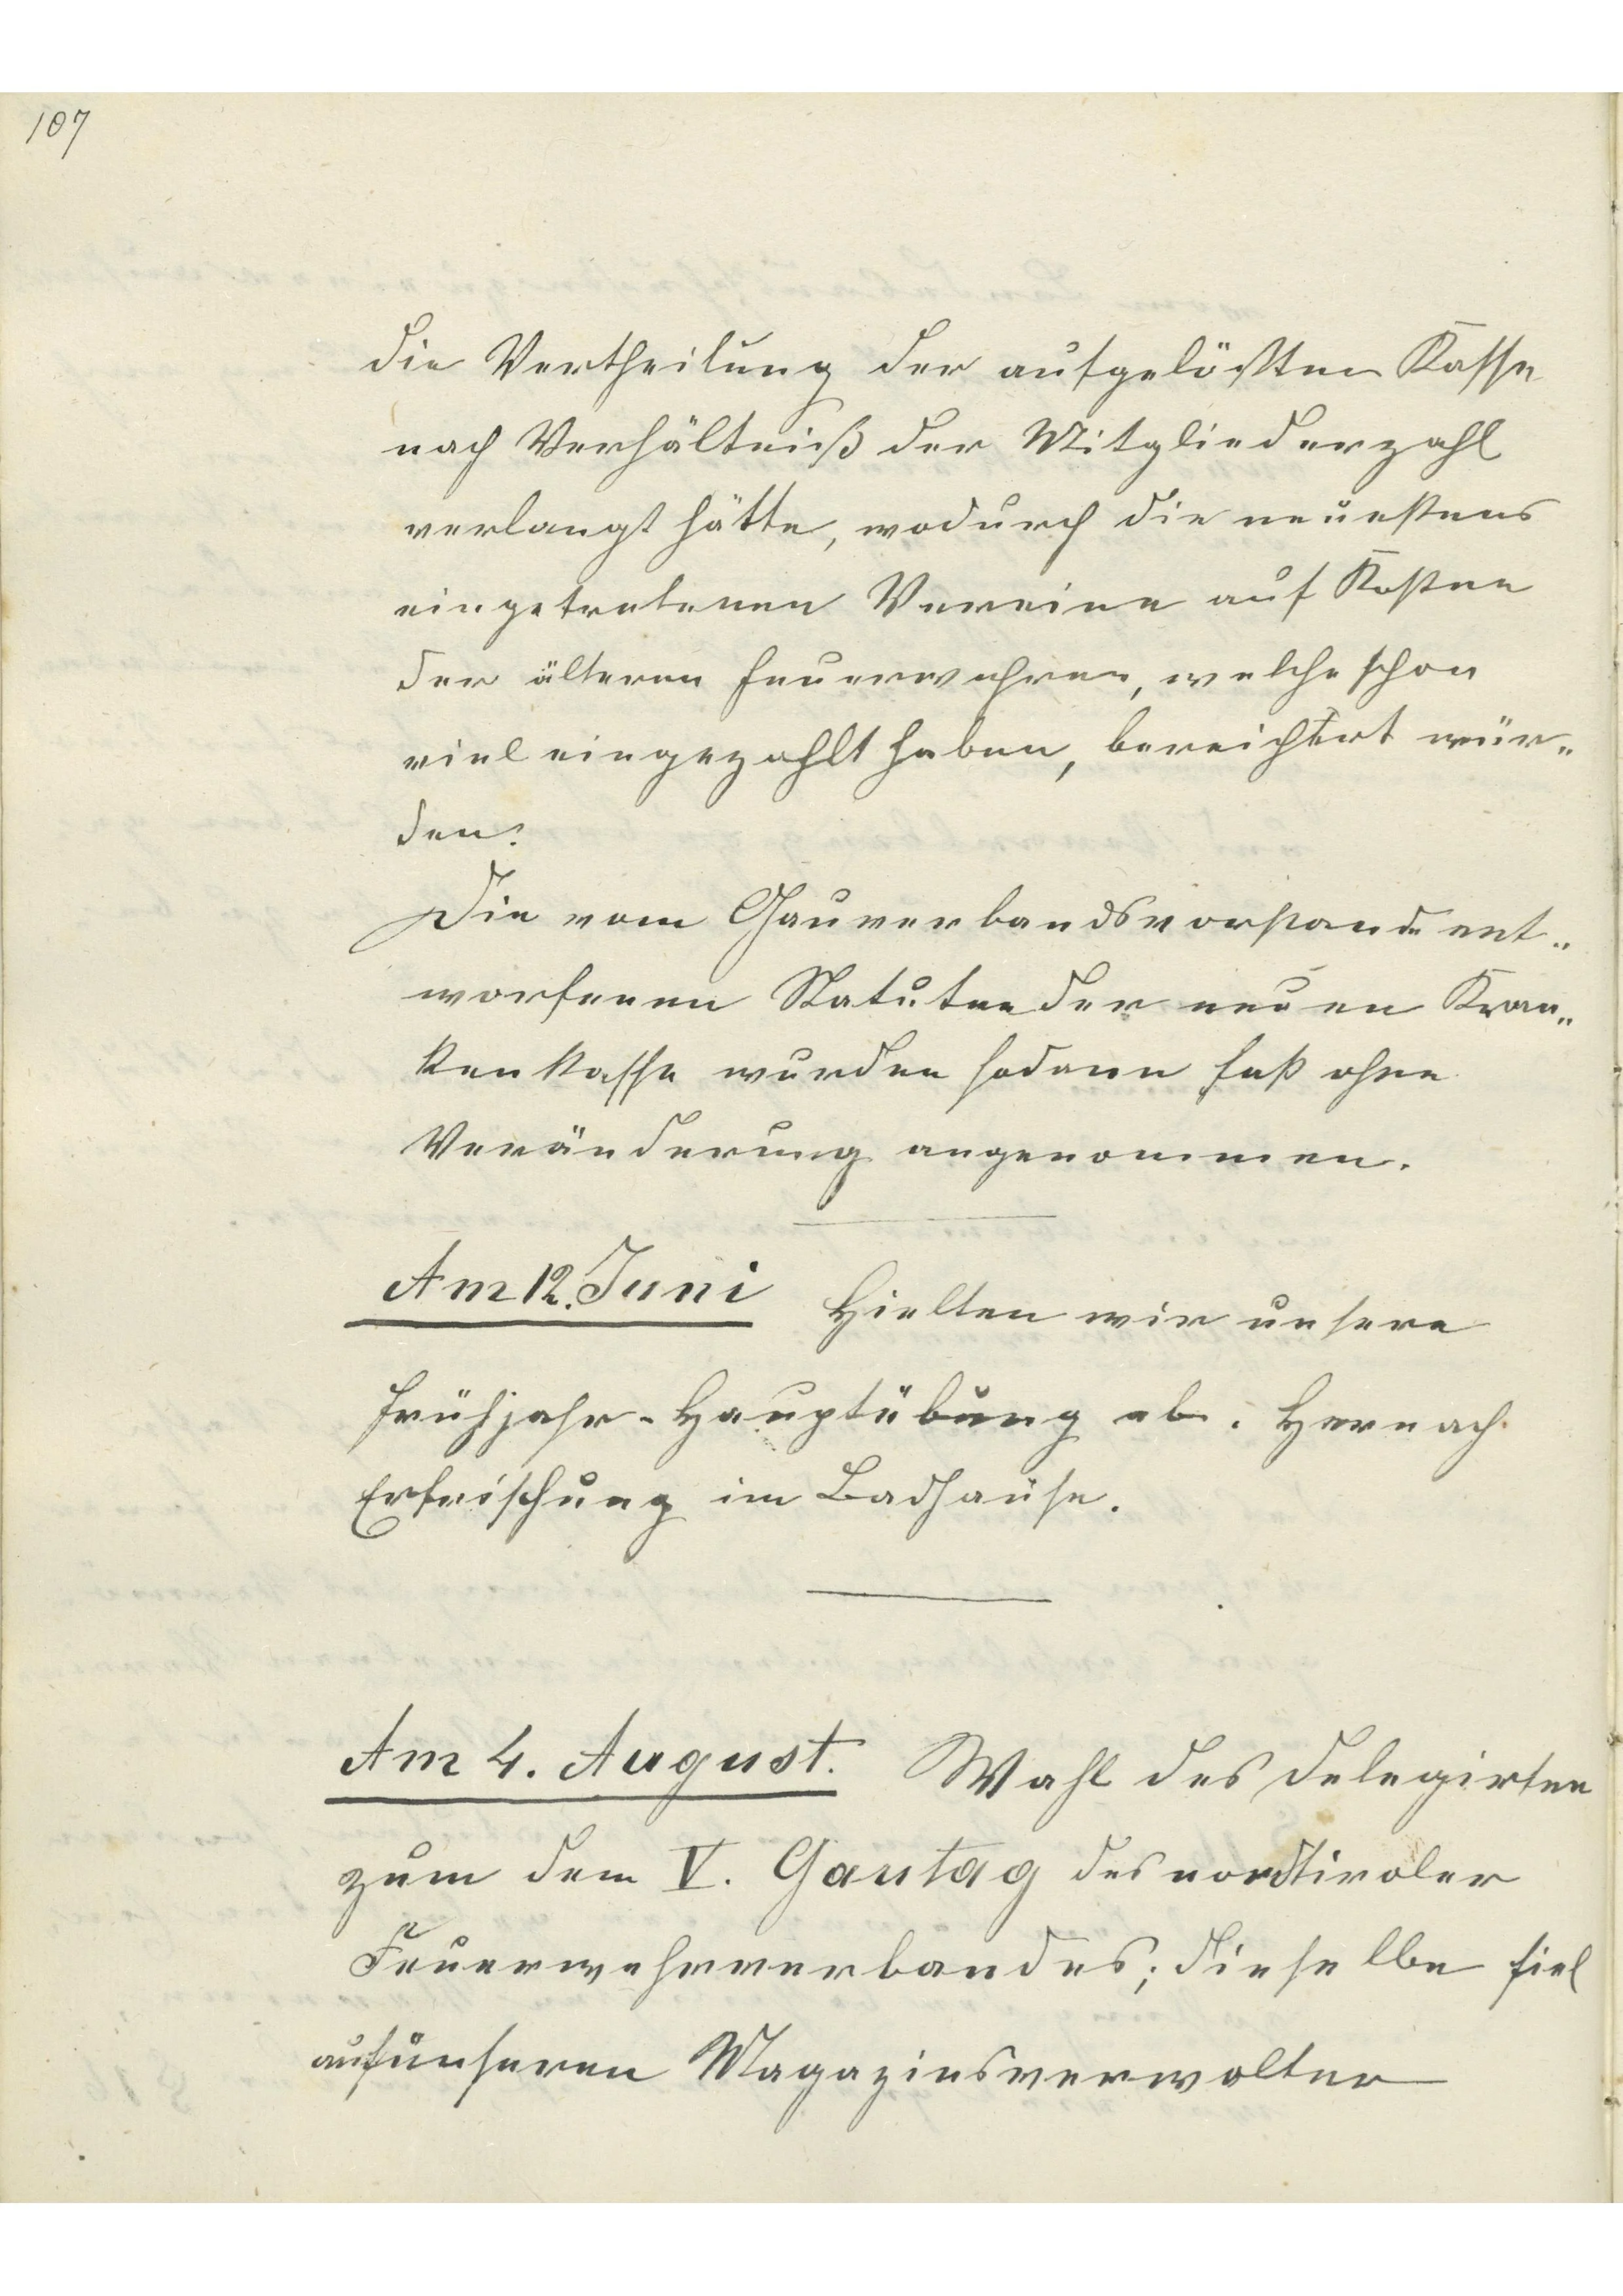 107
die Vertheilung der aufgelößten Kasse
nach Verhältniß der Mitgliederzahl
verlangt hätte, wodurch die neuestens
eingetretenen Vereine auf Kosten
der älteren Feuerwehren, welche schon
viel eingezahlt haben, bereichert wür„
den.
Die vom Gauverbandsvorstande ent„
worfenen Statuten der neuen Kran„
kenkasse wurden sodann fast ohne
Veränderung angenommen.
Am 12. Juni Hielten wir unsere
Frühjahr-Hauptübung ab. Hernach
Erfrischung im Badhause.
Am 4. August. Wahl des Delegirten
zum dem V. Gautag des nordtiroler
Feuerwehrverbandes; dieselbe fiel
auf unseren Magazinsverwalter